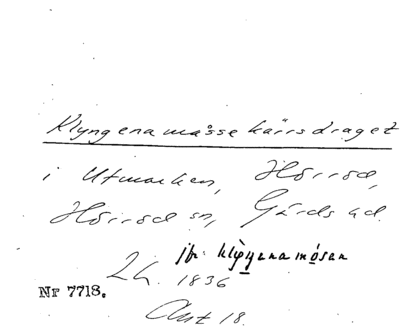 Klyngenamåssekärrsdraget
i Utmarken, Hörröd,
Hörröd sn, Gärds hd.
jfr. klyngenamósen
Lh. 1836
Nr 7718.
Akt 18.